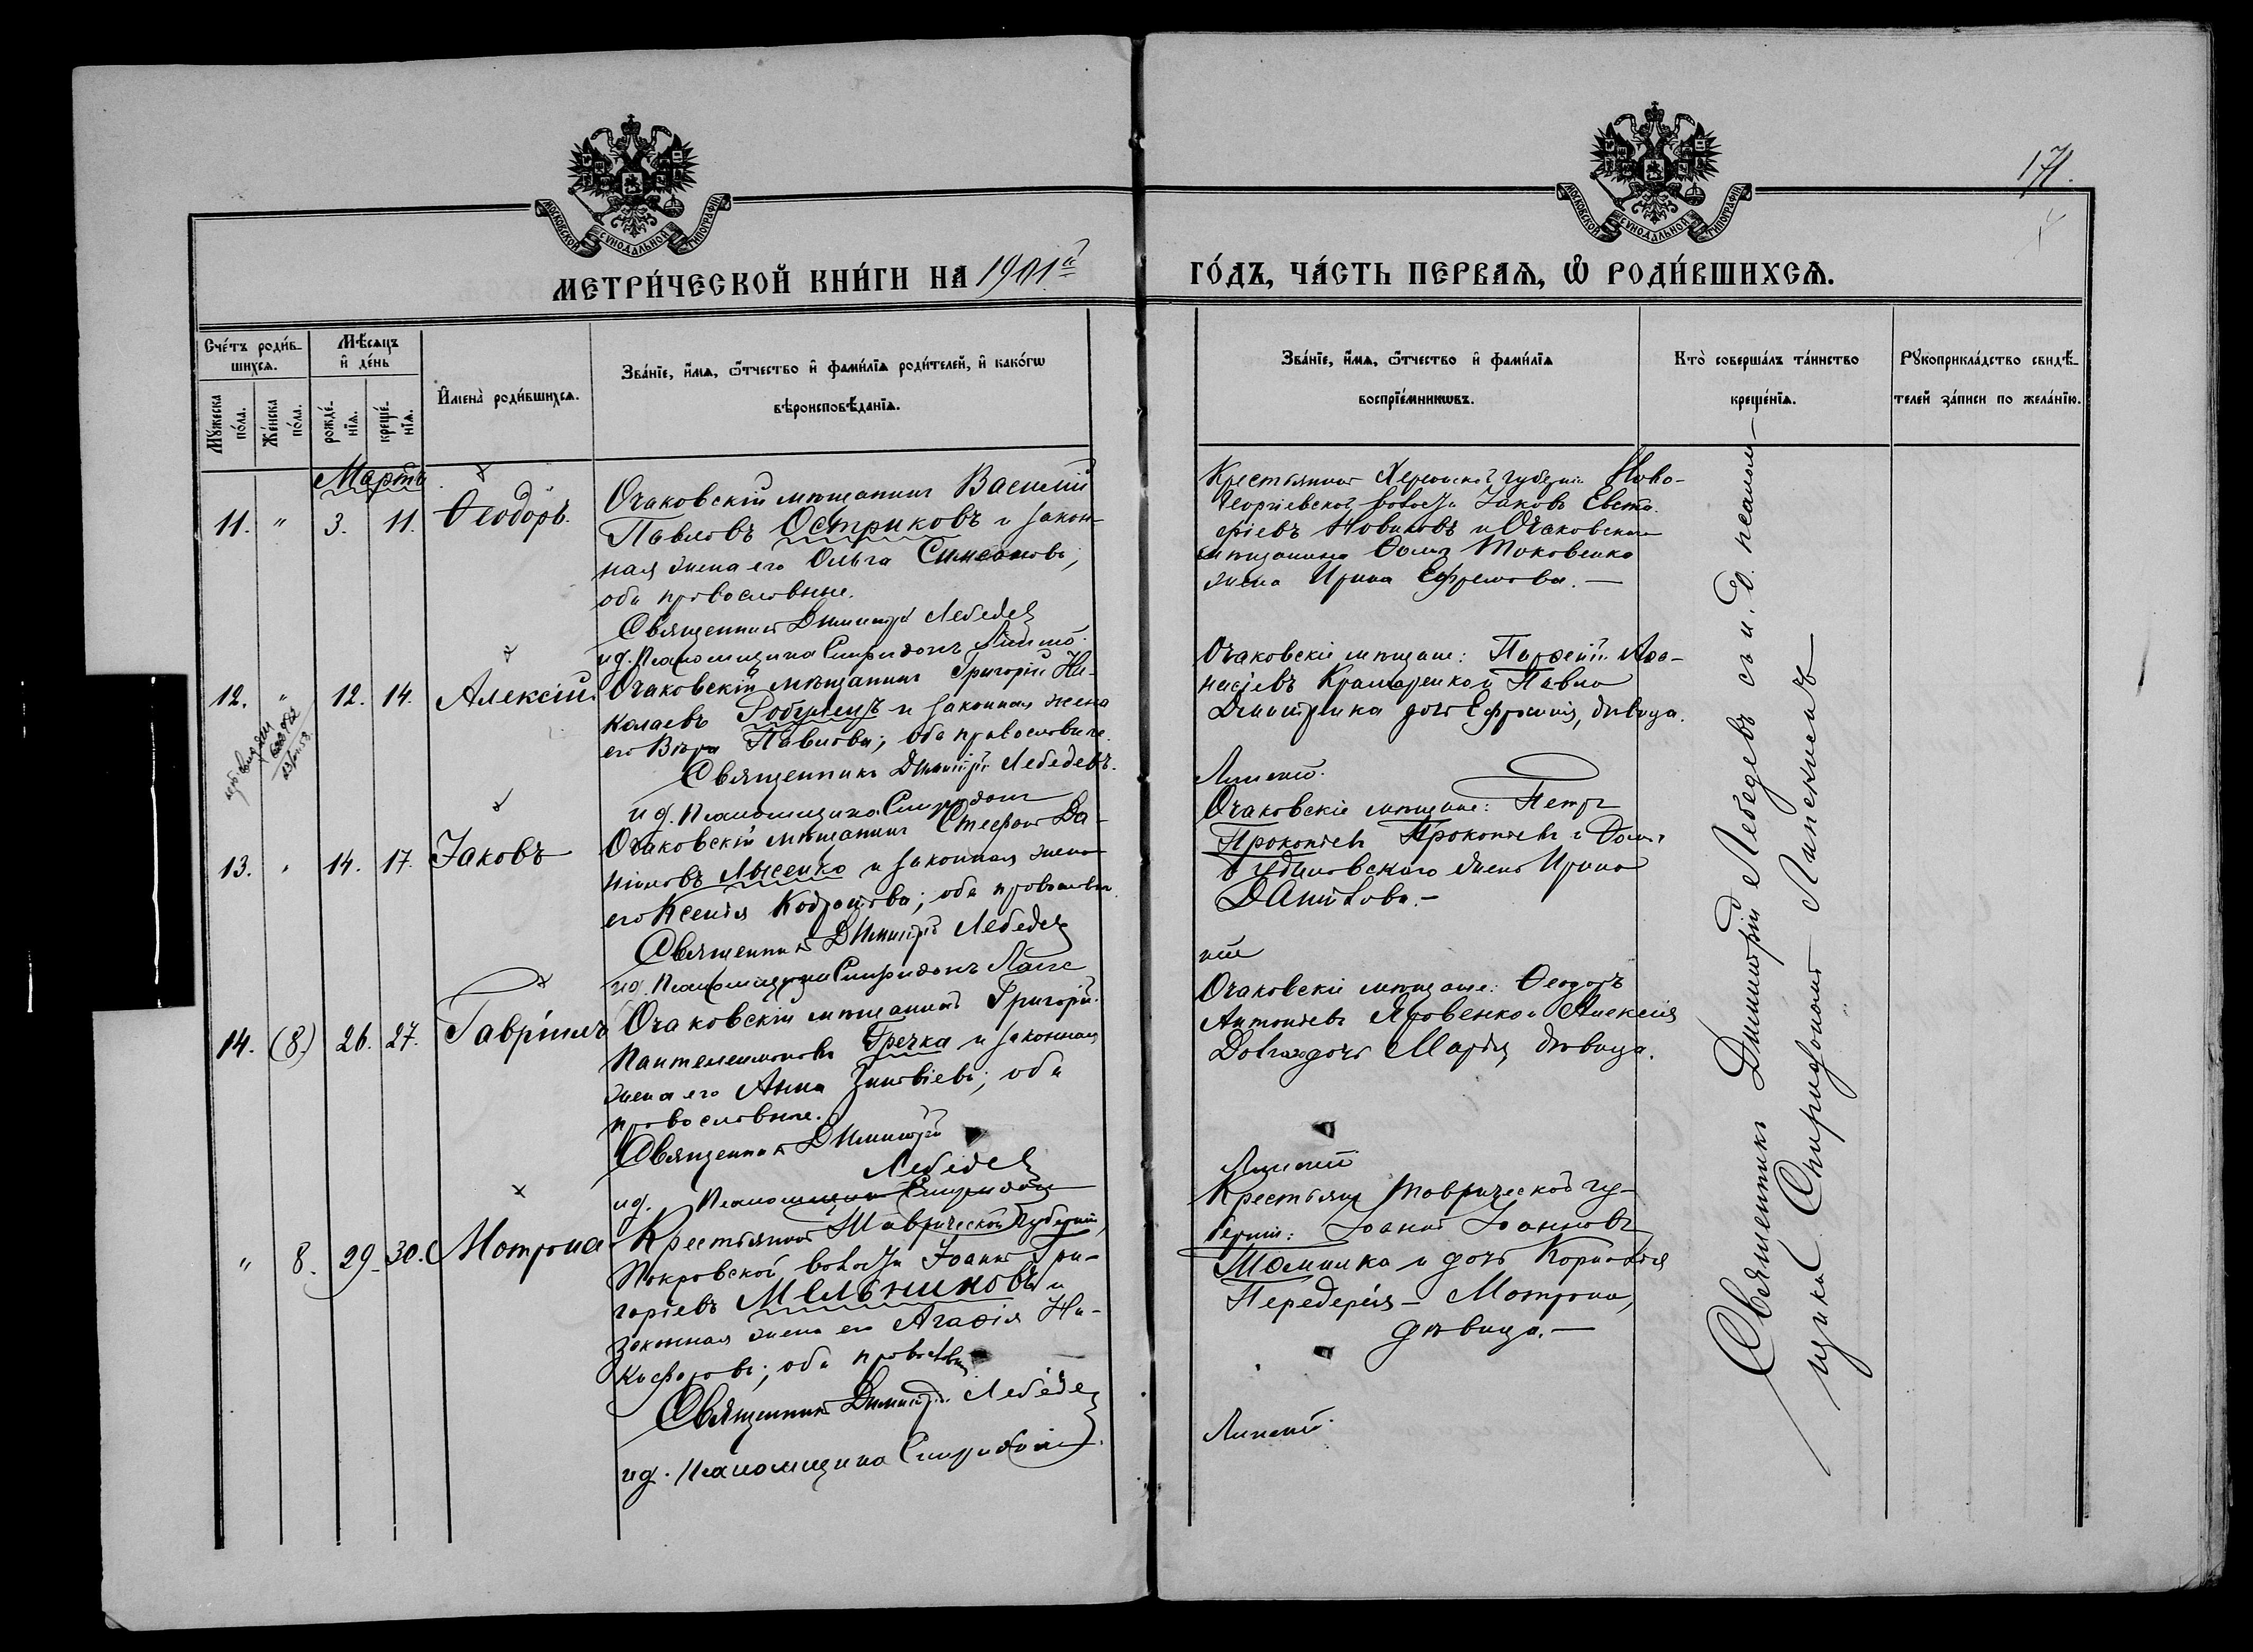 171.
МОСКОВСКОЙ СѴНОДАЛЬНОЙ ТИПОГРАФІИ
МОСКОВСКОЙ СѴНОДАЛЬНОЙ ТИПОГРАФІИ
МЕТРИ́ЧЕСКОЙ КНИ́ГИ НА 1901й
ГО́ДЪ, ЧА́СТЬ ПЕРВАѦ, Ѿ РОДИ́ВШИХСѦ.
Сче́тъ роди́в-
шихсѧ.
Мѣ́сѧцъ
и҆ де́нь
Мꙋ́жеска
по́ла.
Же́нска
по́ла.
рожде́-
нїѧ.
креще́-
нїѧ.
И҆мена̀ роди́вшихсѧ.
Зва́нїе, и҆́мѧ, ѻ҆́тчество и҆ фами́лїѧ роди́телей, и҆ како́гѡ
вѣроисповѣ́данїѧ.
Зва́нїе, и҆́мѧ, ѻ҆́тчество и҆ фами́лїѧ
воспрїе́мникѡвъ.
Кто̀ соверша́лъ та́инство
креще́нїѧ.
Рꙋкоприкла́дство свидѣ́-
телей за́писи по жела́нїю.
Мартъ
11. " 3. 11. Ѳеодоръ.
Очаковскій мѣщанинъ Василій
Павловъ Остриковъ и закон-
ная жена его Ольга Симеонова;
оба православные.
Священникъ Димитрій Лебедевъ
и д. Псаломщика Спиридонъ
Крестьянинъ Херсонской губерніи Ново-
Георгіевской волости Іаковъ Евста-
фіевъ Новиковъ и Очаковскаго
мѣщанина Токовенко
жена Ирина Ефремова.—
12. " 12. 14. Алексій.
Очаковскій мѣщанинъ Григорій Ни-
колаевъ и законная жена
его Вѣра Павлова; оба православные.
Священникъ Димитрій Лебедевъ.
и д. Псаломщика Спиридонъ
Очаковскіе мѣщане: Парѳеній Аѳа-
насіевъ Крамаренко и Павла
Дмитрика дочь Ефросинія, дѣвица.
13. " 14. 17. Іаковъ
Очаковскій мѣщанинъ Стефанъ Да-
ніиловъ Лысенко и законная жена
его Ксенія; оба православн.
Священникъ Димитрій Лебедевъ
и д. Псаломщика Спиридонъ
Очаковскіе мѣщане: Петръ
Прокопіевъ Прокопіевъ и
жена Ирина
Данилова.—
14. (8.) 26. 27. Гавріилъ
Очаковскій мѣщанинъ Григорій
Пантелеимоновъ Гречка и законная
жена его Анна Зиновіева; оба
православные.
Священникъ Димитрій
Лебедевъ
и д. Псаломщика Спиридонъ
Очаковскіе мѣщане: Ѳеодоръ
Антоніевъ Яровенко и Алексія
дочь Марія, дѣвица.
" 8. 29. 30. Мотрона
Крестьянинъ Таврической губерніи,
Покровской волости Іоаннъ Гри-
горіевъ Мельниковъ и
законная жена его Агаѳія Ни-
кифорова; оба правосл.
Священникъ Димитрій Лебедевъ
и д. Псаломщика Спиридонъ
Крестьяне Таврической гу-
берніи: Іоаннъ Іоанновъ
и дочь Корнилія
Передерія — Мотрона,
дѣвица.—
Священникъ Димитрій Лебедевъ съ и. д. псалом-
щика Спиридономъ